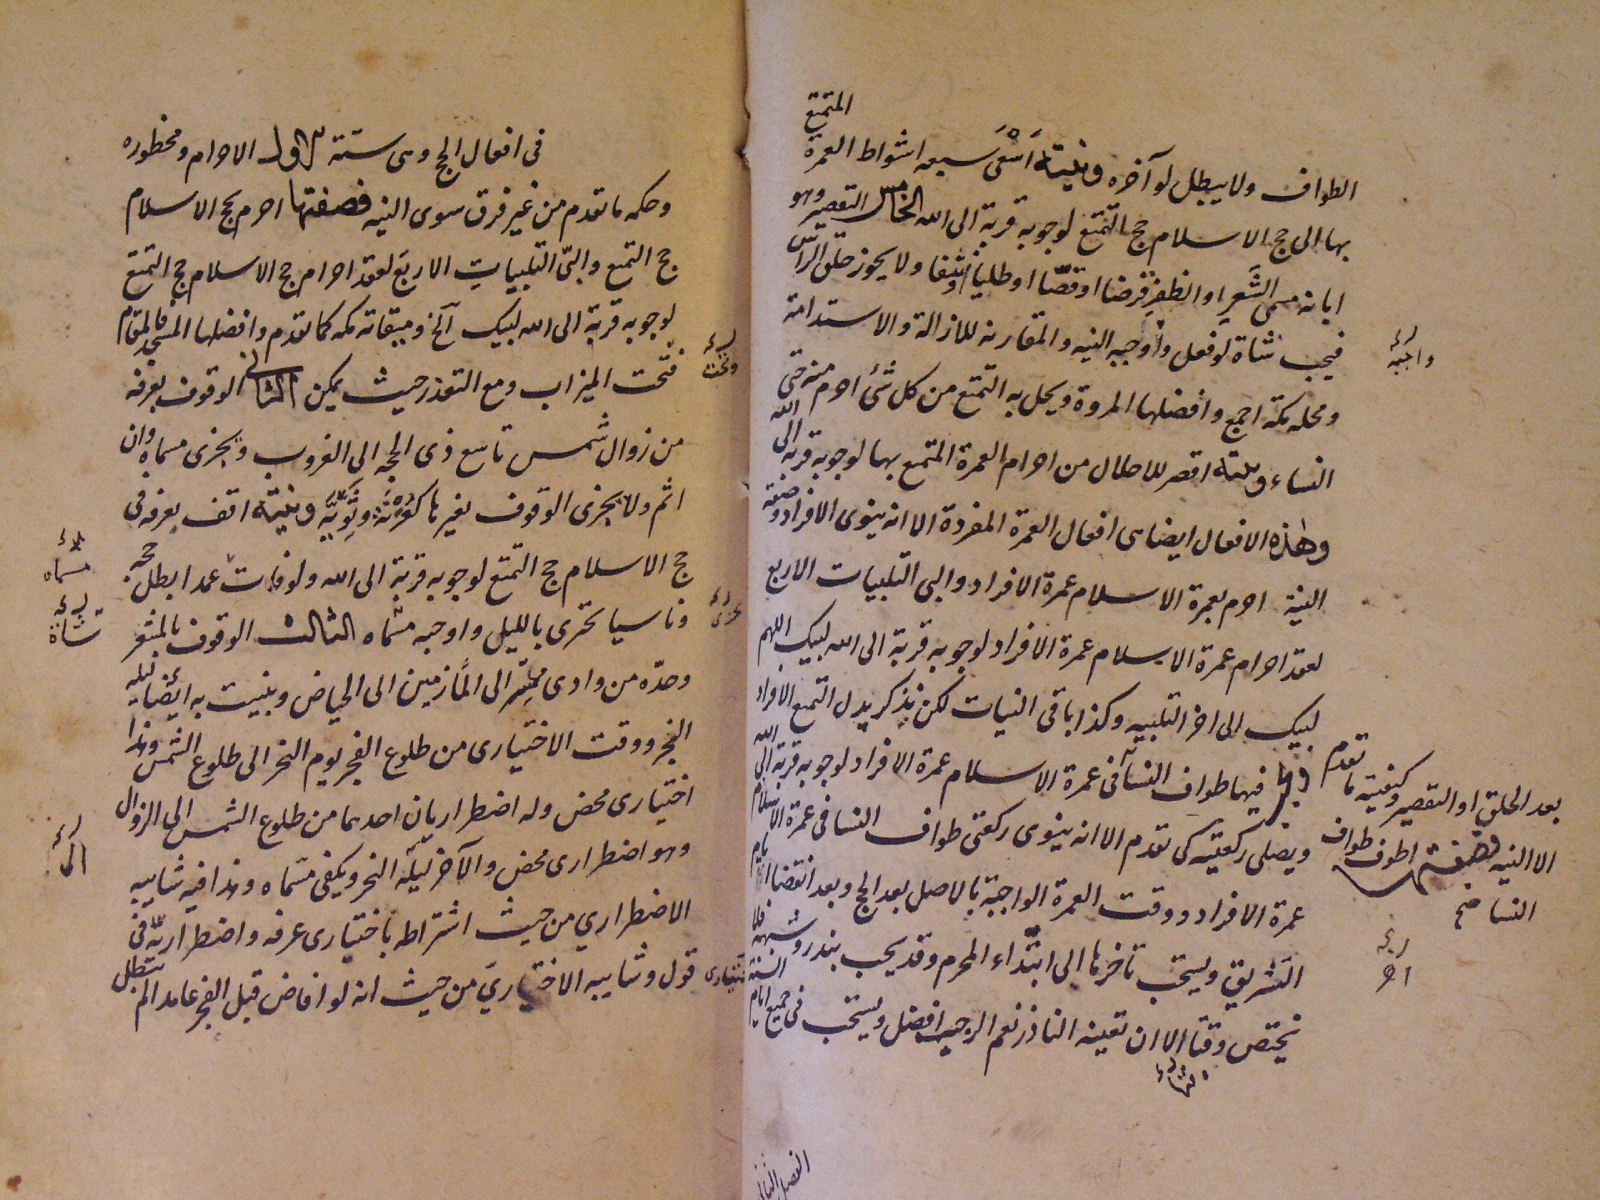 المتمتع
الطواف ولا يبطل لو آخره ونيته اَسْعَى سبعه اشواط العمرة
بها الى حج الاسلام حج التمتع لوجوبه قربة الى الله الخامس التقصير وهو
ابانه مسمى الشَّعرِ او الظفرِ قرضا او قصّا او طليا ونتفا ولا يجوز حلق الراس
فيجب شاة لو فعل واوجبه النيه والمقارنه للازالة والاستدامة
ومحله مكة اجمع وافضلها المروة ويحل به التمتع من كل شئ احرم منه حتى
النساء ونيته اقصر للاحلال من احرام العمرة المتمتع بها لوجوبه قربه الى الله
وهذه الافعال ايضا هى افعال العمرة المفردة الا انه ينوى الافراد وصفة
النية احرم بعمرة الاسلام عمرة الافراد والبى التلبيات الاربع
لعقد احرام عمرة الاسلام عمرة الافراد لوجوبه قربة الى الله لبيك اللهم
لبيك الى اخر التلبيه وكذا باقى النيات لكن يذكر بدل التمتع الافراد
فيها طواف النسآ فى عمرة الاسلام عمرة الافراد لوجوبه قربة الى الله
ويصلى ركعتيه كما تقدم الا انه ينوى ركعتى طواف النسا فى عمرة الاسلام
عمرة الافراد ووقت العمرة الواجبة بالاصل بعد الحج وبعد انقضا ايام
التشريق ويستحب تاخرها الى ابتداء المحرم وقد يجب بنذر وشبهه فلا
يختص وقتا الا ان تعينه الناذر نعم الرجبيه افضل ويستحب فى جميع ايام السنة
بعد الحلق او التقصير وكيفيته ما تقدم
الا النيه فصفتها اطوف طواف
النسا صح
واجبه
الفصل الثانى
فى افعال الحج وهى ستة الاول الاحرام ومحظوره
وحكمه ما تقدم من غير فرق سوى النيه فصفتها احرم بحج الاسلام
حج التمتع والبّى التلبيات الاربع لعقد احرام حج الاسلام حج التمتع
لوجوبه قربة الى الله لبيك آلخ وميقاته مكه كما تقدم وافضلها المسجد فالمقام
فتحت الميزاب ومع التعذر حيث يمكن الثانى الوقوف بعرفه
من زوال شمس تاسع ذى الحجه الى الغروب ويجزى مسماه وان
اثم ولا يجزى الوقوف بغيرها كعُرْنَة وثَوِيَّة ونيته اقف بعرفه فى
حج الاسلام حج التمتع لوجوبه قربة الى الله ولو فات عمدا بطل حجه
وناسيا تحرى بالليل واوجبه مسماه الثالث الوقوف بالمشعر
وحدّه من وادى محسّر الى المأزمين الى الحياض ويبيت به ايضا ليله
الفجر ووقت الاختيارى من طلوع الفجر يوم النحر الى طلوع الشمس وهذا
اختيارى محض وله اضطراريان احدهما من طلوع الشمس الى الزوال
وهو اضطرارى محض والآخر ليلة النحر ويكفى مسماه وهذا فيه شايبه
الاضطراري من حيث اشتراطه باختيارى عرفه واضطراريّه فى
قول وشايبه الاختياريّ من حيث انه لو افاض قبل الفجر عامدا لم يبطل
مسماه
شاة